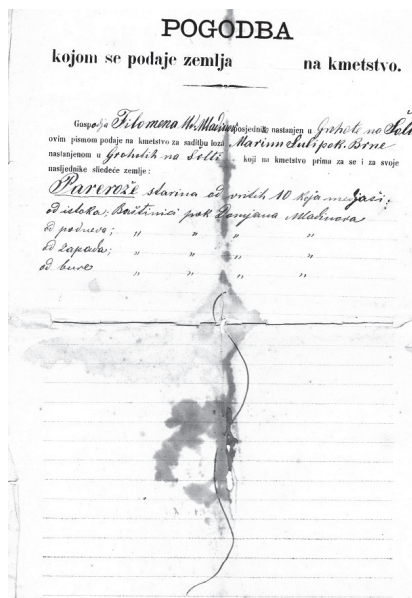 POGODBA
kojom se podaje zemlja na kmetstvo.
Gospodja Filomena posjednik nastanjen u Grohote na Šolti
ovim pismom podaje na kmetstvo za saditbu loza Marinu Suti pok. Brne
nastanjenom u Grohotih na Šolti koji na kmetstvo prima za se i za svoje
nasljednike sliedeće zemlje:
Parerože starina od vritih 10 koja medjaši:
od istoka; Baštinici pok Damjana Mladinova
od podneva; " " " "
od zapada; " " " "
od bure " " " "